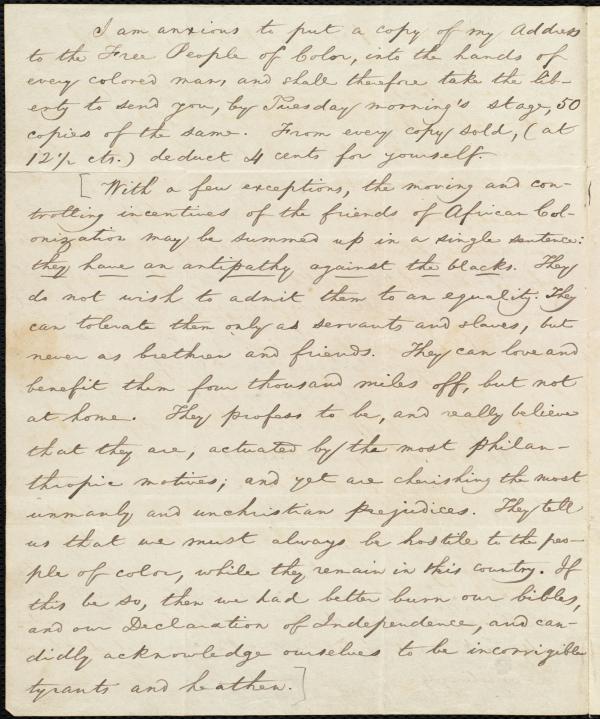 I am anxious to put a copy of my Address
to the Free People of Color, into the hands of
every colored man, and shall therefore take the lib-
erty to send you, by Tuesday morning's stage, 50
copies of the same. From every copy sold, (at
12 1/2 cts.) deduct 4 cents for yourself.
[With a few exceptions, the moving and con-
trolling incentives of the friends of African Col-
onization may be summed up in a single sentence:
they have an antipathy against the blacks. They
do not wish to admit them to an equality. They
can tolerate them only as servants and slaves, but
never as brethren and friends. They can love and
benefit them four thousand miles off, but not
at home. They profess to be, and really believe
that they are, actuated by the most philan-
thropic motives; and yet are cherishing the most
unmanly and unchristian prejudices. They tell
us that we must always be hostile to the peo-
ple of color, while they remain in this country. If
this be so, then we had better burn our bibles,
and our Declaration of Independence, and can-
didly acknowledge ourselves to be incorrigible
tyrants and heathen.]